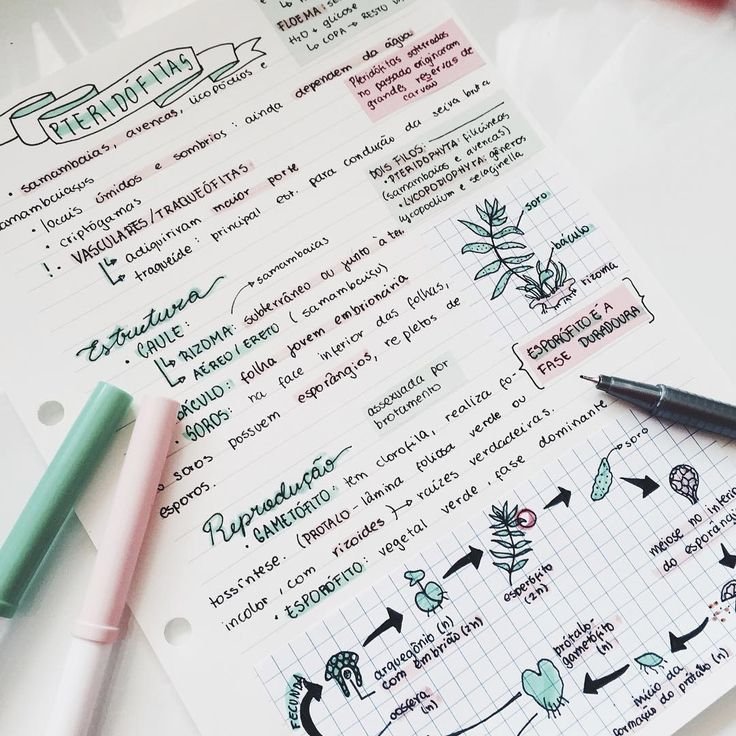 FLOEMA:
H₂O + glicose
↳ COPA → RESTO
PTERIDÓFITAS
Pteridófitas soterradas
no passado originaram
grandes reservas de
carvão
• samambaias, avencas, licopódios e
samambaiaçus
• locais úmidos e sombrios: ainda dependem da água
• criptógamas
!. VASCULARES/TRAQUEÓFITAS
↳ adiquiriram maior porte
↳ traqueíde: principal est. para condução da seiva bruta
DOIS FILOS:
• PTERIDOPHYTA: filicíneas
(samambaias e avencas)
• LYCOPODIOPHYTA: gêneros
lycopodium e selaginella
soro
báculo
rizoma
ESPORÓFITO É A
FASE DURADOURA
Estrutura
• CAULE:
samambaias
↳ RIZOMA: subterrâneo ou junto à ter.
↳ AÉREO/ERETO (samambaiaçu)
BÁCULO: folha jovem embrionária
• SOROS: na face inferior das folhas.
soros possuem esporângios, repletos de
esporos.
assexuada por
brotamento
Reprodução
• GAMETÓFITO: tem clorofila, realiza fo-
tossíntese. (PROTALO - lâmina foliosa verde ou
incolor, com rizoides) → raízes verdadeiras.
• ESPORÓFITO: vegetal verde, fase dominante
soro
meiose no interior
do esporângio
esporófito
(2n)
arquegônio (n)
com embrião (2n)
FECUNDA
oosfera
(n)
prótalo-
gametófito
(n)
início da
formação do prótalo (n)